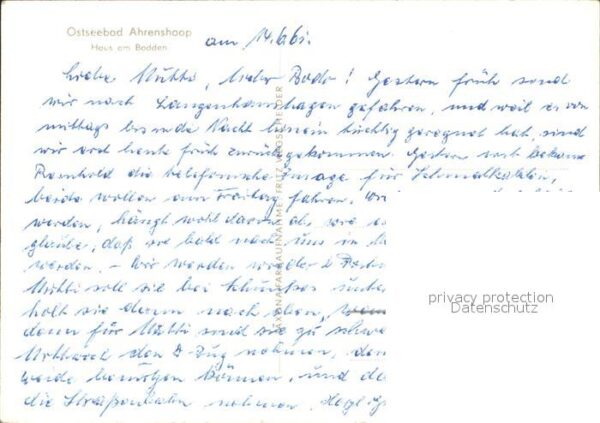 Ostseebad Ahrenshoop
Haus am Bodden
am 14.6.61.
Liebe Mutti, lieber Bodo! Gestern früh sind
wir nach Langenhanshagen gefahren, und weil es von
mittags bis in de Nacht hinein tüchtig geregnet hat, sind
wir erst heute früh zurückgekommen. Gestern bekam
Reinhold die telefonische Zusage für Schmalkalden,
beide wollen am Freitag fahren.
werden, hängt wohl davon ab, wie
glaube, daß sie bald nach uns in
werden. – Wir werden wieder
Mutti soll sie bei
holt sie dann nach oben,
denn für Mutti sind sie zu
Mittwoch den D Zug nehmen,
beide benutzen können, und
die Straßenbahn nehmen.
privacy protection
Datenschutz